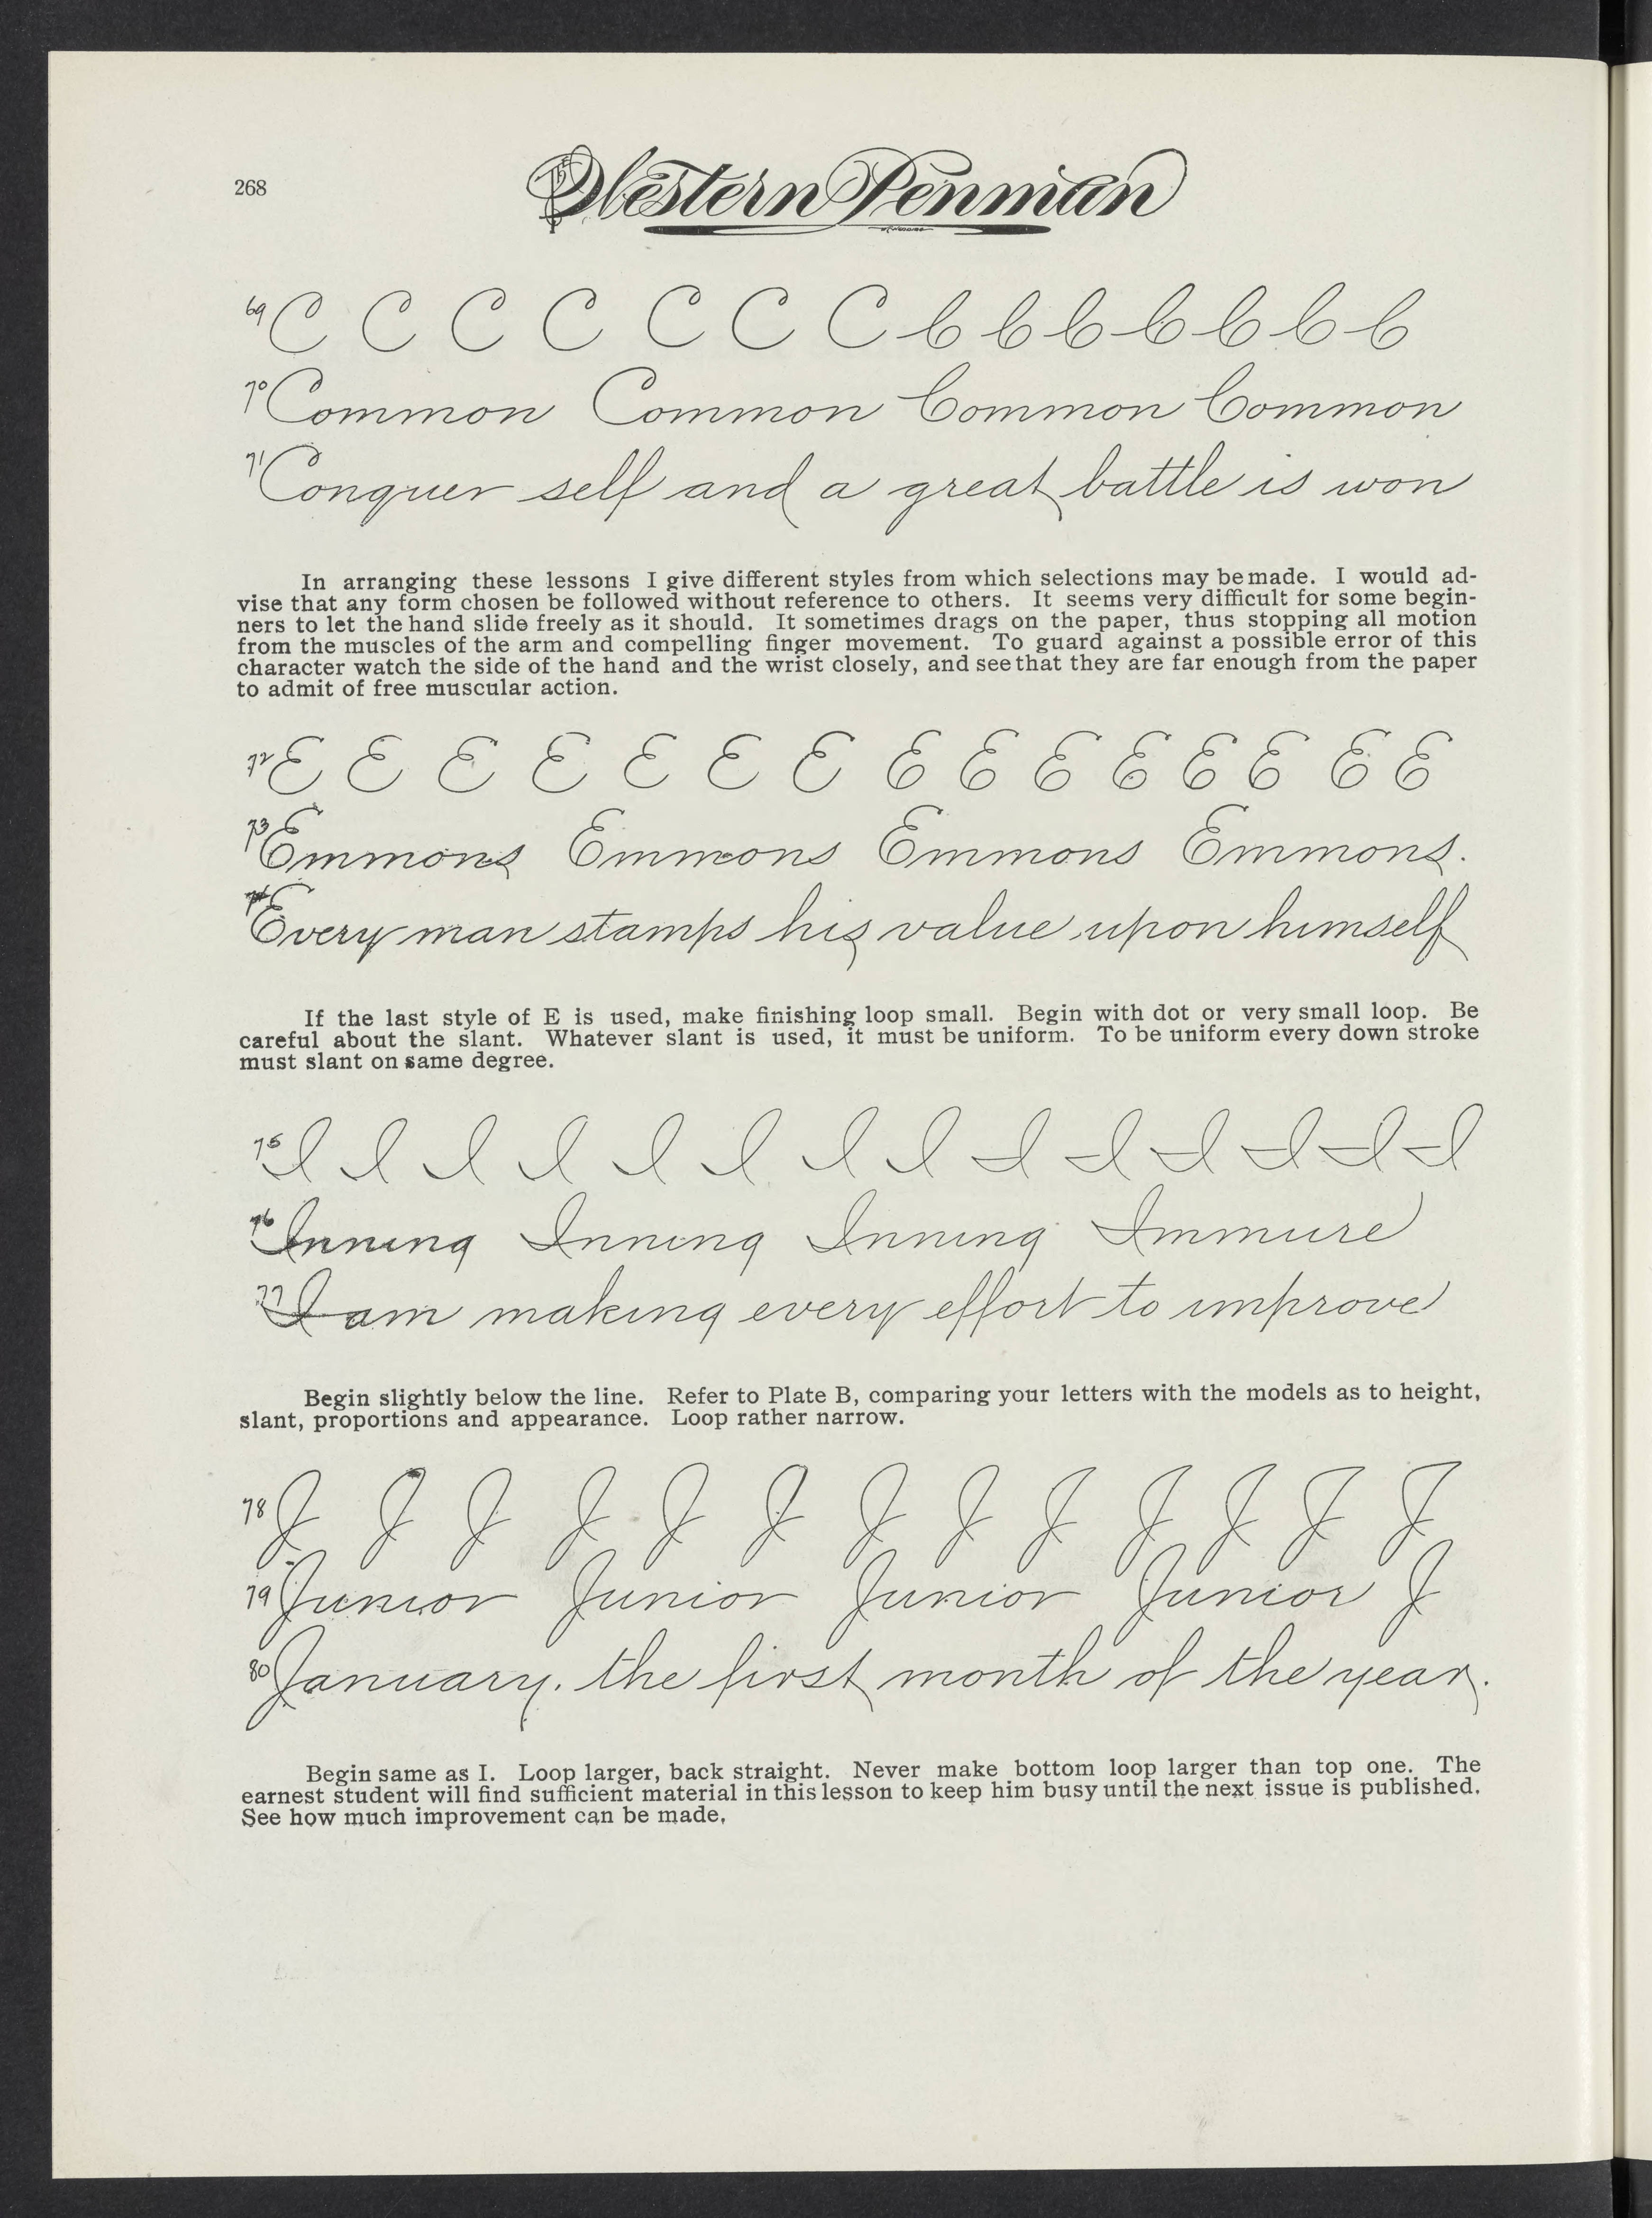 268
The Western Penman
69 C C C C C C C C C C C C C C
70 Common Common Common Common
71 Conquer self and a great battle is won
In arranging these lessons I give different styles from which selections may be made. I would ad-
vise that any form chosen be followed without reference to others. It seems very difficult for some begin-
ners to let the hand slide freely as it should. It sometimes drags on the paper, thus stopping all motion
from the muscles of the arm and compelling finger movement. To guard against a possible error of this
character watch the side of the hand and the wrist closely, and see that they are far enough from the paper
to admit of free muscular action.
72 E E E E E E E E E E E E E E E
73 Emmons Emmons Emmons Emmons.
74 Every man stamps his value upon himself
If the last style of E is used, make finishing loop small. Begin with dot or very small loop. Be
careful about the slant. Whatever slant is used, it must be uniform. To be uniform every down stroke
must slant on same degree.
75 I I I I I I I I I I I I I I
76 Inning Inning Inning Immure
77 I am making every effort to improve
Begin slightly below the line. Refer to Plate B, comparing your letters with the models as to height,
slant, proportions and appearance. Loop rather narrow.
78 J J J J J J J J J J J J J
79 Junior Junior Junior Junior J
80 January, the first month of the year.
Begin same as I. Loop larger, back straight. Never make bottom loop larger than top one. The
earnest student will find sufficient material in this lesson to keep him busy until the next issue is published.
See how much improvement can be made.